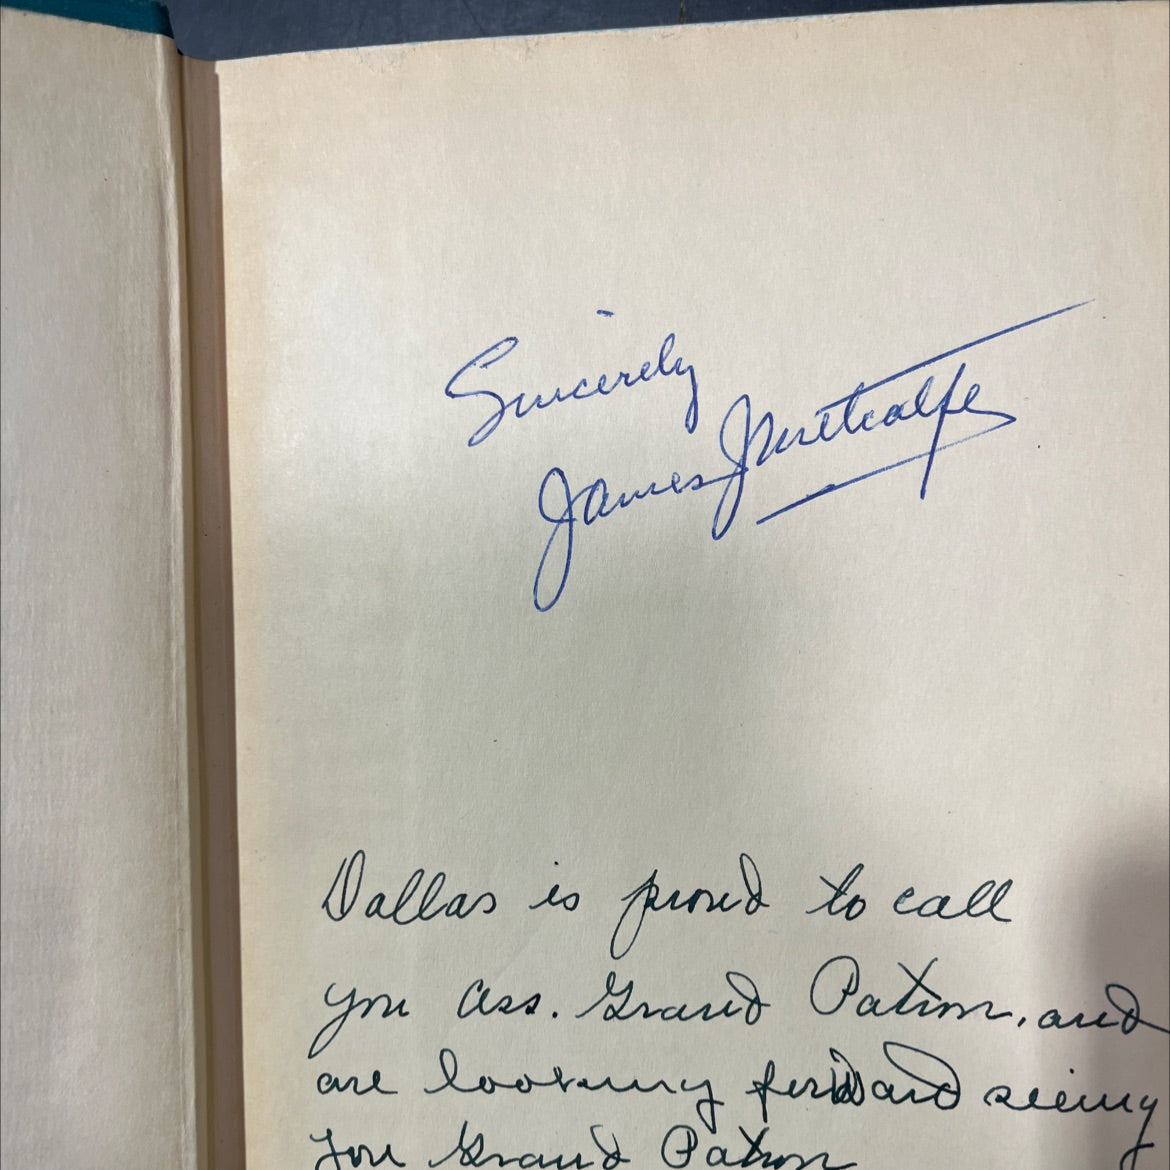 Sincerely
James J Metcalfe
Dallas is proud to call
you Ass. Grand Patron, and
are looking forward seeing
you Grand Patron